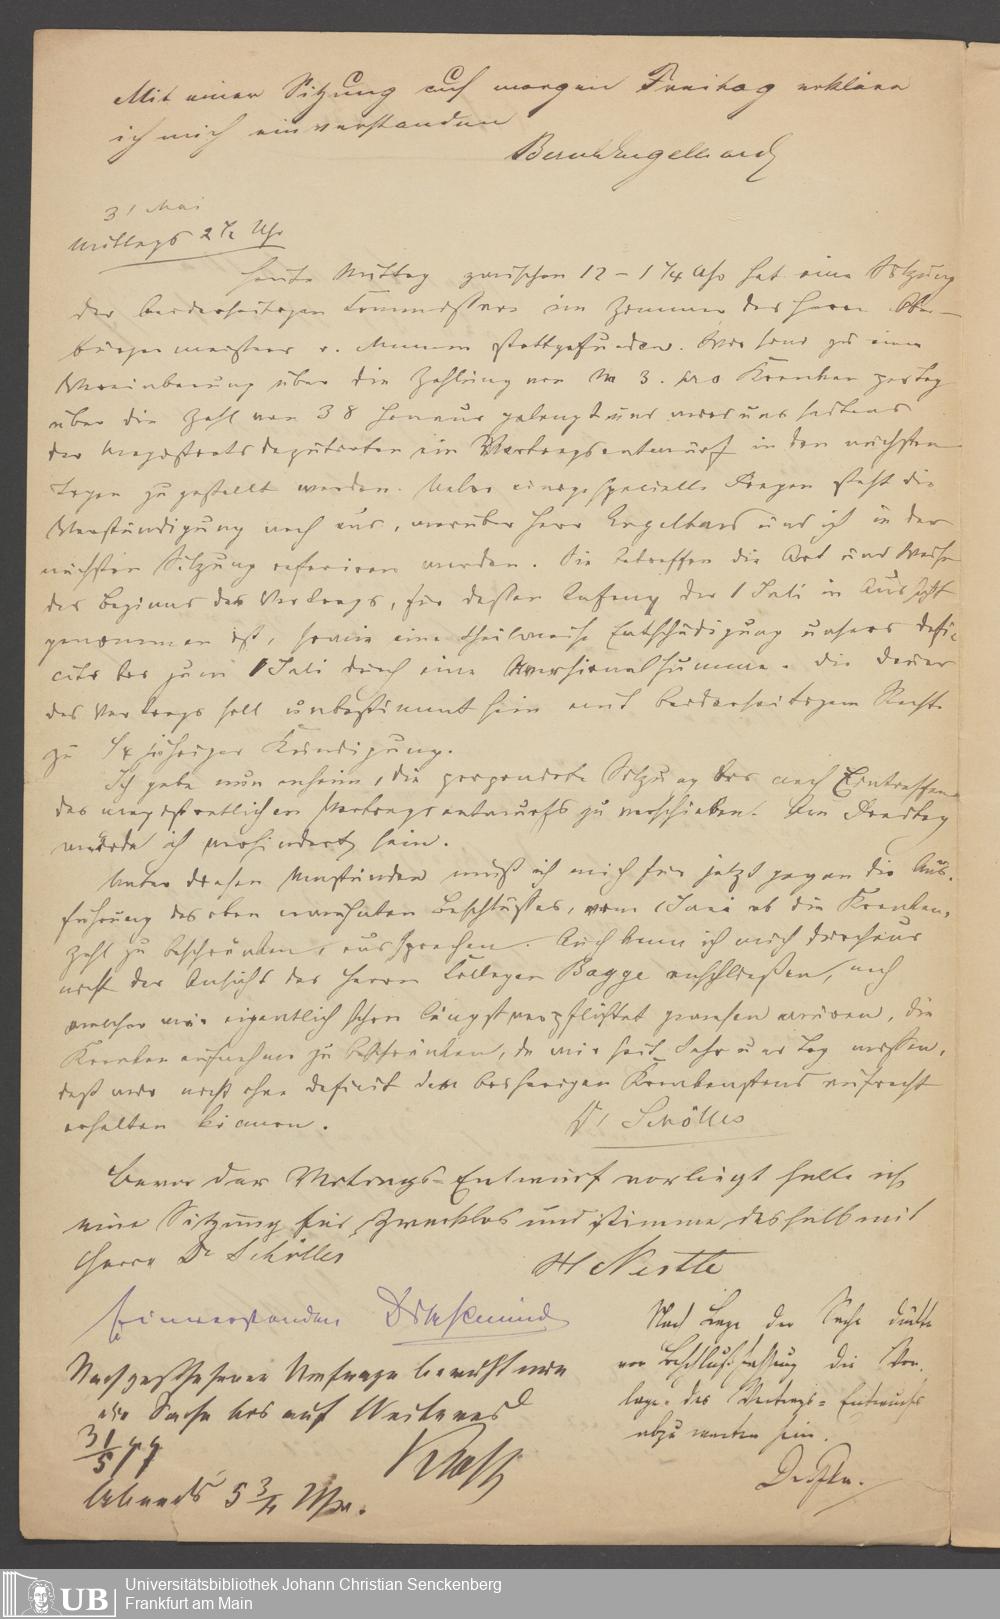 Mit einer Sitzung auf morgen Freitag erkläre
ich mich einverstanden
31 Mai
Mittags 2 1/2 Uhr
Heute Mittag zwischen 12 – 1 1/4 Uhr hat eine Sitzung
der beiderseitigen Commissare im Zimmer des Herrn Ober-
bürgermeisters v. Mumm stattgefunden. Wir sind zu einer
Vereinbarung über die Zahlung von M 3. pro Kranken per Tag
über die Zahl von 38 hinaus gelangt und wird uns seitens
der Magistratsdeputirten ein Vertragsentwurf in den nächsten
Tagen zugestellt werden. Ueber einige specielle Fragen steht die
Verständigung noch aus, worüber Herr Engelhard und ich in der
nächsten Sitzung referiren werden. Sie betreffen die Art und Weise
des Beginns des Vertrags, für dessen Anfang der 1 Juli in Aussicht
genommen ist, sowie eine theilweise Entschädigung unseres Defi-
cits bis zum 1 Juli durch eine Aversionalsumme. Die Dauer
des Vertrags soll unbestimmt sein mit beiderseitigem Recht
zu 1/4 jähriger Kündigung.
Ich gebe nun anheim, die Sitzung bis nach Eintreffen
des magistratlichen Vertragsentwurfs zu verschieben. Am Freitag
würde ich verhindert sein.
Unter diesen Umständen muß ich mich für jetzt gegen die Aus-
führung des oben erwähnten Beschlusses, vom 1 Juni ab die Kranken-
zahl zu beschränken, aussprechen. Auch kann ich mich durchaus
nicht der Ansicht des Herrn Collegen Bagge anschließen, nach
welcher wir eigentlich schon längst verpflichtet gewesen wären, die
Krankenaufnahme zu beschränken, da wir seit Jahr und Tag wissen,
daß wir nicht ohne Deficit den bisherigen Krankenstand aufrecht
erhalten können.
Dr Schölles
Bevor der Vertrags-Entwurf vorliegt halte ich
eine Sitzung für zwecklos und stimme deshalb mit
Herrn Dr Schölles
H Nestle
Einverstanden
Nach Lage der Sache dürfte
vor Beschlußfassung die Vor-
lage des Vertrags-Entwurfs
abzuwarten sein.
Nach geschehener Umfrage beruht nun
die Sache bis auf Weiteres
31/5 77
Abends 5 3/4 Uhr.
UB
Universitätsbibliothek Johann Christian Senckenberg
Frankfurt am Main